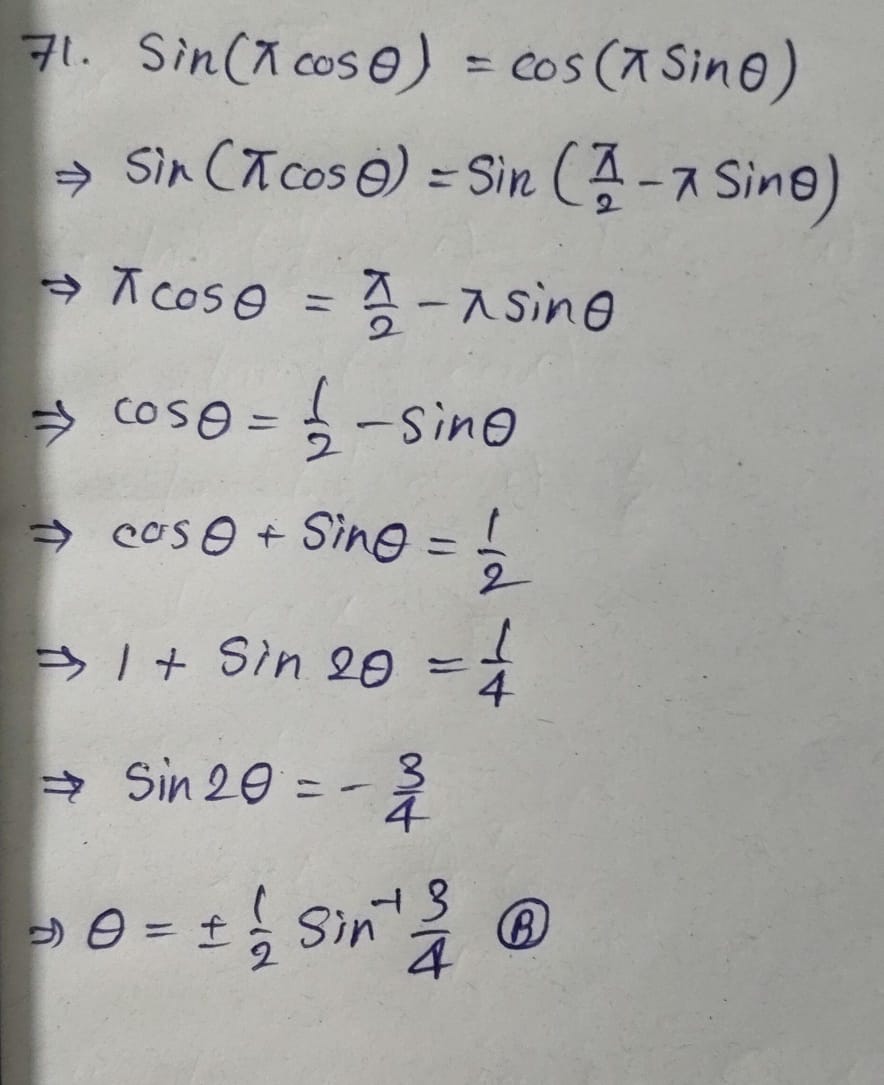 71. Sin(π cosθ) = cos(π Sinθ)
⇒ Sin(π cosθ) = Sin(π/2 - π Sinθ)
⇒ π cosθ = π/2 - π sinθ
⇒ cosθ = 1/2 - sinθ
⇒ cosθ + Sinθ = 1/2
⇒ 1 + Sin 2θ = 1/4
⇒ Sin 2θ = - 3/4
⇒ θ = ± 1/2 Sin⁻¹ 3/4 Ⓑ